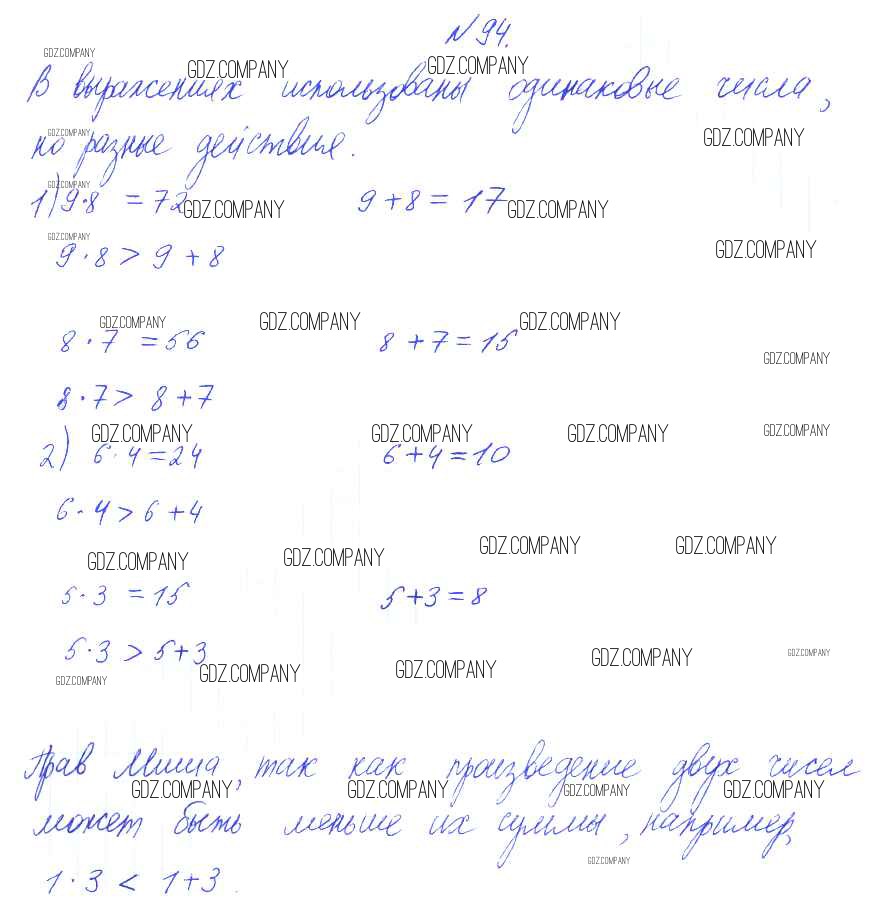 N 94.
GDZ.COMPANY GDZ.COMPANY GDZ.COMPANY
В выражениях использованы одинаковые числа,
GDZ.COMPANY GDZ.COMPANY
но разные действия.
GDZ.COMPANY
1) 9·8 = 72 9+8 = 17
GDZ.COMPANY GDZ.COMPANY
GDZ.COMPANY GDZ.COMPANY
9·8 > 9+8
GDZ.COMPANY GDZ.COMPANY GDZ.COMPANY
8·7 = 56 8+7 = 15
GDZ.COMPANY
8·7 > 8+7
GDZ.COMPANY GDZ.COMPANY GDZ.COMPANY GDZ.COMPANY
2) 6·4 = 24 6+4 = 10
6·4 > 6+4
GDZ.COMPANY GDZ.COMPANY GDZ.COMPANY GDZ.COMPANY
5·3 = 15 5+3 = 8
5·3 > 5+3
GDZ.COMPANY GDZ.COMPANY GDZ.COMPANY GDZ.COMPANY GDZ.COMPANY
Прав Миша, так как произведение двух чисел
GDZ.COMPANY GDZ.COMPANY GDZ.COMPANY GDZ.COMPANY
может быть меньше их суммы, например,
GDZ.COMPANY
1·3 < 1+3.